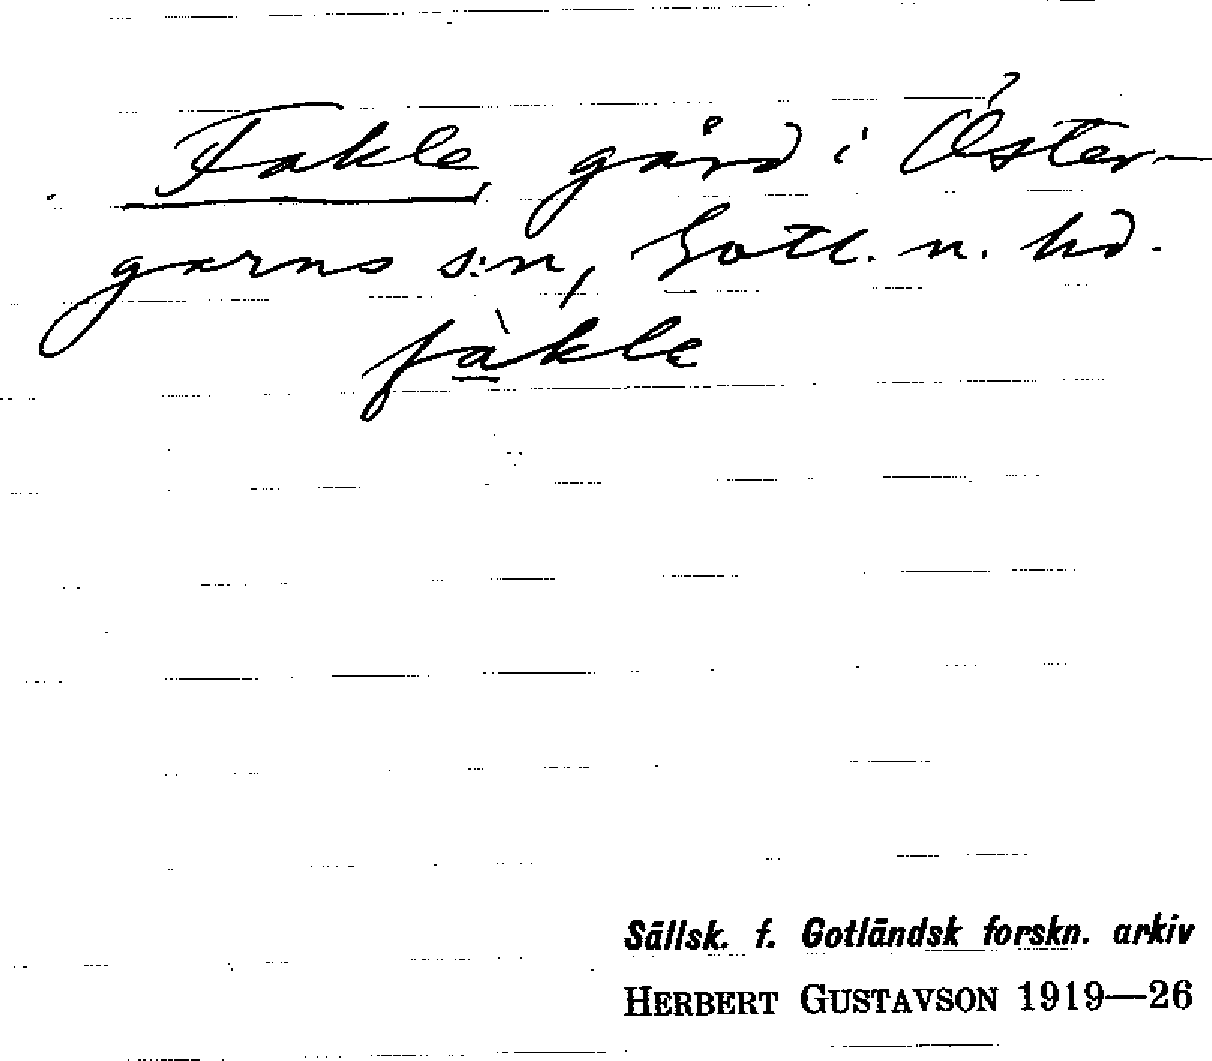 Fakle, gård i Öster-
garns s:n, Gotl. n. hd.
fàkle
Sällsk. f. Gotländsk forskn. arkiv
HERBERT GUSTAVSON 1919—26